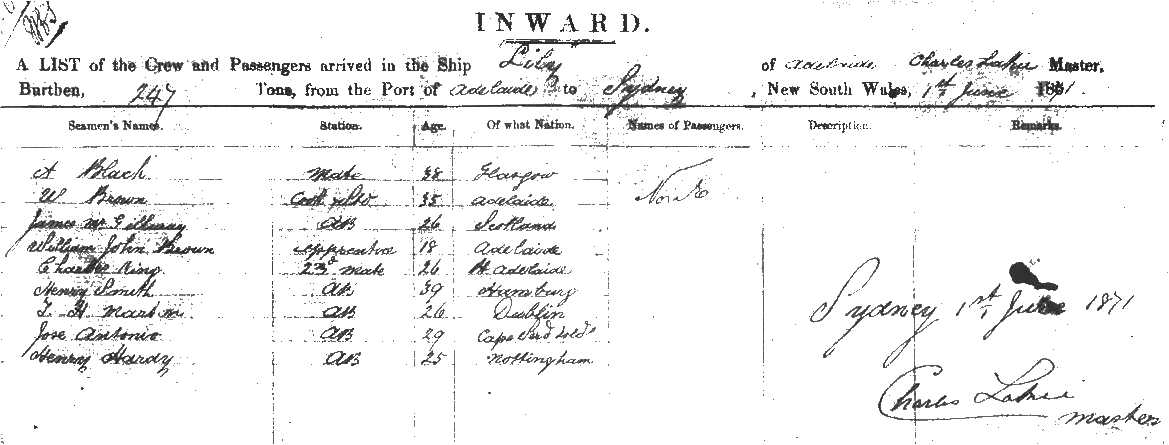 INWARD.
A LIST of the Crew and Passengers arrived in the Ship Lily of Adelaide Charles Lakie Master,
Burthen, 247 Tons, from the Port of Adelaide to Sydney, New South Wales, 1st June 1871.
Seamen's Names. Station. Age. Of what Nation. Names of Passengers. Description. Remarks.
A Black Mate 38 Glasgow
W Brown Cook & Std 35 Adelaide None
James Mc Gilluray AB 26 Scotland
William John Brown Apprentice 18 Adelaide
Charles King 2nd Mate 26 Pt Adelaide
Henry Smith AB 39 Hamburg
T H Martin AB 26 Dublin
Jose Antonio AB 29 Cape Verd Islds
Henry Hardy AB 25 Nottingham
Sydney 1st June 1871
Charles Lakie
Master